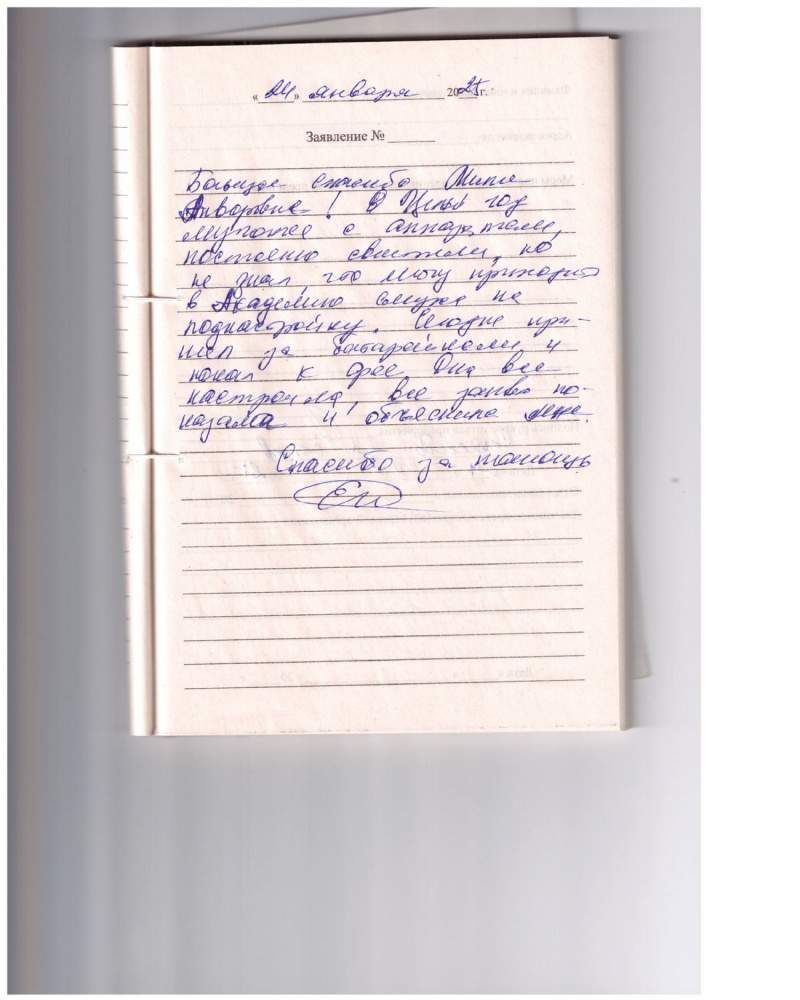 «24» января 2025 г.
Заявление №
Большое спасибо
Анваровне! Я Целый год
мучался с аппаратами,
постоянно свистели, но
не знал, что могу приходить
в Академию слуха на
поднастройку. Сегодня при-
шел за батарейками и
попал к фее. Она все
настроила, все заново по-
казала и объяснила мне.
Спасибо за помощь